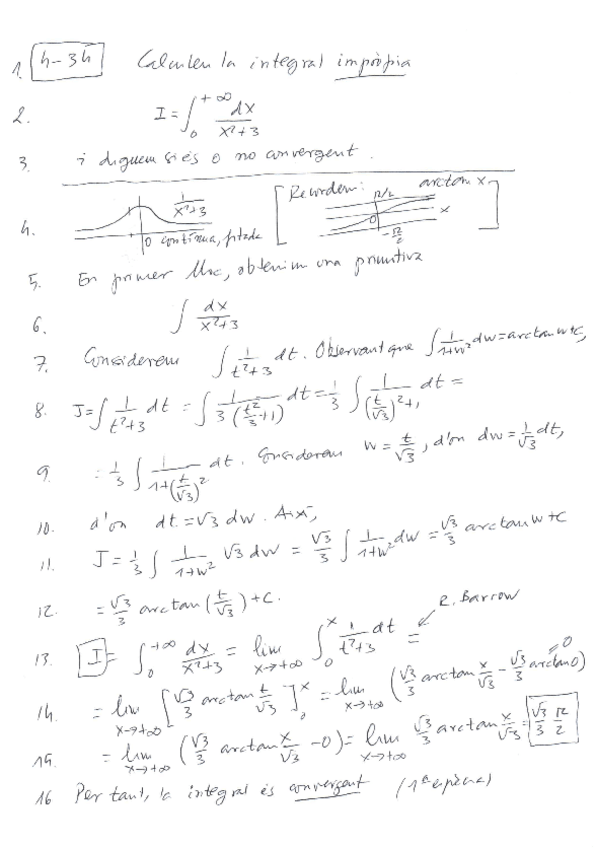 1. h-3h Calculeu la integral impròpia
2. I = ∫₀^{+∞} dx/(x²+3)
3. i diguem si és o no convergent.
4. 1/(x²+3) 0 contínua, fitada [Recordem: π/2 arctan x 0 x -π/2]
5. En primer lloc, obtenim una primitiva
6. ∫ dx/(x²+3)
7. Considerem ∫ 1/(t²+3) dt. Observant que ∫ 1/(1+w²) dw = arctan w + c,
8. J = ∫ 1/(t²+3) dt = ∫ 1/(3(t²/3+1)) dt = 1/3 ∫ 1/((t/√3)²+1) dt =
9. = 1/3 ∫ 1/(1+(t/√3)²) dt. Considerem w = t/√3, d'on dw = 1/√3 dt,
10. d'on dt = √3 dw. Així,
11. J = 1/3 ∫ 1/(1+w²) √3 dw = √3/3 ∫ 1/(1+w²) dw = √3/3 arctan w + C
12. = √3/3 arctan(t/√3) + C.
R. Barrow
13. I = ∫₀^{+∞} dx/(x²+3) = lim_{x→+∞} ∫₀^x 1/(t²+3) dt =
14. = lim_{x→+∞} [√3/3 arctan t/√3]₀^x = lim_{x→+∞} (√3/3 arctan x/√3 - √3/3 arctan 0) = 0
15. = lim_{x→+∞} (√3/3 arctan x/√3 - 0) = lim_{x→+∞} √3/3 arctan x/√3 = √3/3 π/2
16 Per tant, la integral és convergent (1ª espècie)